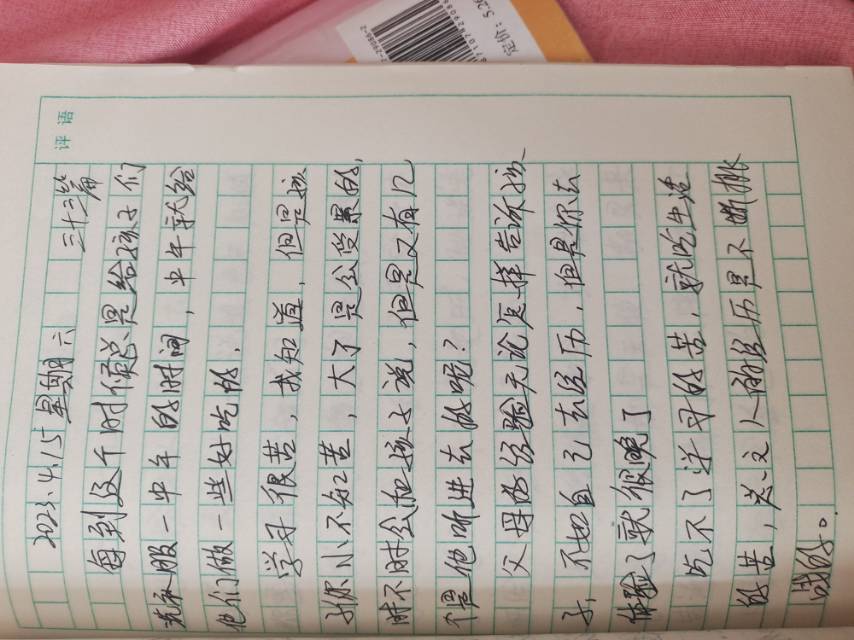 评语
2023.4.15 星期六 三十三篇
每到这个时候总是给孩子们
洗衣服一中午的时间，中午就给
他们做一些好吃的.
学习很苦，我知道，但是孩
子你小不知苦，大了是会受累的,
时不时会和孩子说，但是又有几
个是他听进去的呢?
父母的经验无论怎样告诉孩
子，不如自己去经历，但是你去
体验了就很晚了
吃不了学习的苦，就吃生活
的苦，总之人的经历是不断挑
战的。
定价：5.20